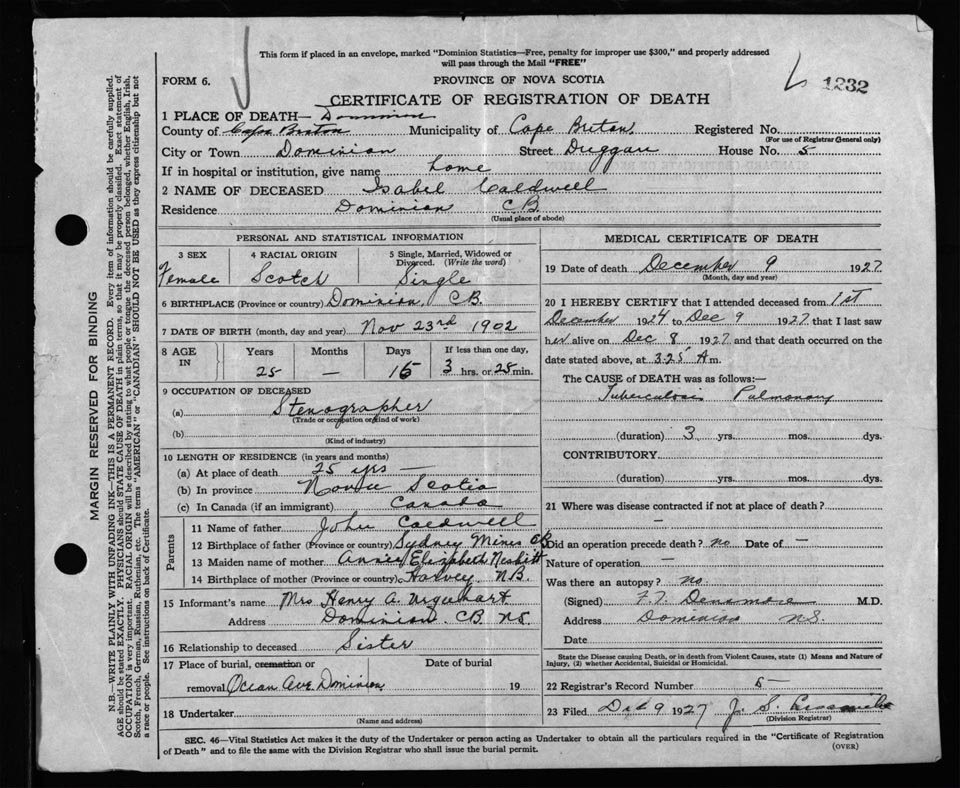 This form if placed in an envelope, marked "Dominion Statistics—Free, penalty for improper use $300," and properly addressed
will pass through the Mail "FREE"
FORM 6.
PROVINCE OF NOVA SCOTIA
1232
CERTIFICATE OF REGISTRATION OF DEATH
1 PLACE OF DEATH— Dominion
County of Cape Breton Municipality of Cape Breton Registered No.
(For use of Registrar General only)
City or Town Dominion Street Duggan House No. 5
If in hospital or institution, give name home
2 NAME OF DECEASED Isabel Caldwell
Residence Dominion C.B.
(Usual place of abode)
PERSONAL AND STATISTICAL INFORMATION
3 SEX 4 RACIAL ORIGIN 5 Single, Married, Widowed or Divorced. (Write the word)
Female Scotch Single
6 BIRTHPLACE (Province or country) Dominion, C.B.
7 DATE OF BIRTH (month, day and year) Nov 23rd 1902
8 AGE IN Years Months Days If less than one day,
25 — 15 3 hrs. or 25 min.
9 OCCUPATION OF DECEASED
(a) Stenographer
(Trade or occupation or kind of work)
(b)
(Kind of industry)
10 LENGTH OF RESIDENCE (in years and months)
(a) At place of death 25 yrs —
(b) In province Nova Scotia
(c) In Canada (if an immigrant) Canada
Parents
11 Name of father John Caldwell
12 Birthplace of father (Province or country) Sydney Mines CB
13 Maiden name of mother Annie Elizabeth Nesbitt
14 Birthplace of mother (Province or country) Harvey. N.B.
15 Informant's name Mrs Henry A. Urquhart
Address Dominion. CB. NS.
16 Relationship to deceased Sister
17 Place of burial, cremation or Date of burial
removal Ocean Ave Dominion 19
18 Undertaker
(Name and address)
MEDICAL CERTIFICATE OF DEATH
19 Date of death December 9 1927
(Month, day and year)
20 I HEREBY CERTIFY that I attended deceased from 1st
December 1924 to Dec 9 1927 that I last saw
her alive on Dec 8 1927 and that death occurred on the
date stated above, at 3.25 A m.
The CAUSE OF DEATH was as follows:—
Tuberculosis Pulmonary
(duration) 3 yrs. mos. dys.
CONTRIBUTORY
(duration) yrs. mos. dys.
21 Where was disease contracted if not at place of death?
—
Did an operation precede death? no Date of —
Nature of operation —
Was there an autopsy? no.
(Signed) F.T. Densmore M.D.
Address Dominion N.S.
Date
State the Disease causing Death, or in death from Violent Causes, state (1) Means and Nature of
Injury, (2) whether Accidental, Suicidal or Homicidal.
22 Registrar's Record Number 5
23 Filed Dec 9 1927 J. S.
(Division Registrar)
SEC. 46—Vital Statistics Act makes it the duty of the Undertaker or person acting as Undertaker to obtain all the particulars required in the "Certificate of Registration
of Death" and to file the same with the Division Registrar who shall issue the burial permit.
(OVER)
MARGIN RESERVED FOR BINDING
N.B.—WRITE PLAINLY WITH UNFADING INK—THIS IS A PERMANENT RECORD. Every item of information should be carefully supplied.
AGE should be stated EXACTLY. PHYSICIANS should STATE CAUSE OF DEATH in plain terms, so that it may be properly classified. Exact statement of
OCCUPATION is very important. RACIAL ORIGIN will be described by stating to what people or tongue the deceased person belonged, whether English, Irish,
Scotch, French, German, Russian, Ruthenian, etc. The terms "AMERICAN" or "CANADIAN" SHOULD NOT BE USED as they express citizenship but not
a race or people. See instructions on back of Certificate.